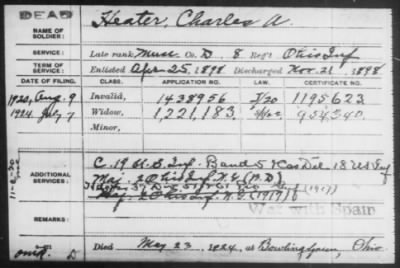 DEAD
NAME OF SOLDIER: Heater, Charles A.
SERVICE: Late rank Musc. Co. D 8 Reg't Ohio Inf
TERM OF SERVICE: Enlisted Apr 25, 1898 Discharged Nov. 21 1898
DATE OF FILING. CLASS. APPLICATION NO. LAW. CERTIFICATE NO.
1920, Aug. 9 Invalid, 1438956 1195623
1924, July 7 Widow, 1,221,183 954340
Minor,
ADDITIONAL SERVICES: C. 19 U.S. Inf. Band 18 US Inf
Maj. 2 Ohio Inf. N.G.
2 Ohio Inf. N.G. (1917)
War with Spain
REMARKS:
Died May 23, 1924, at Bowling Green, Ohio